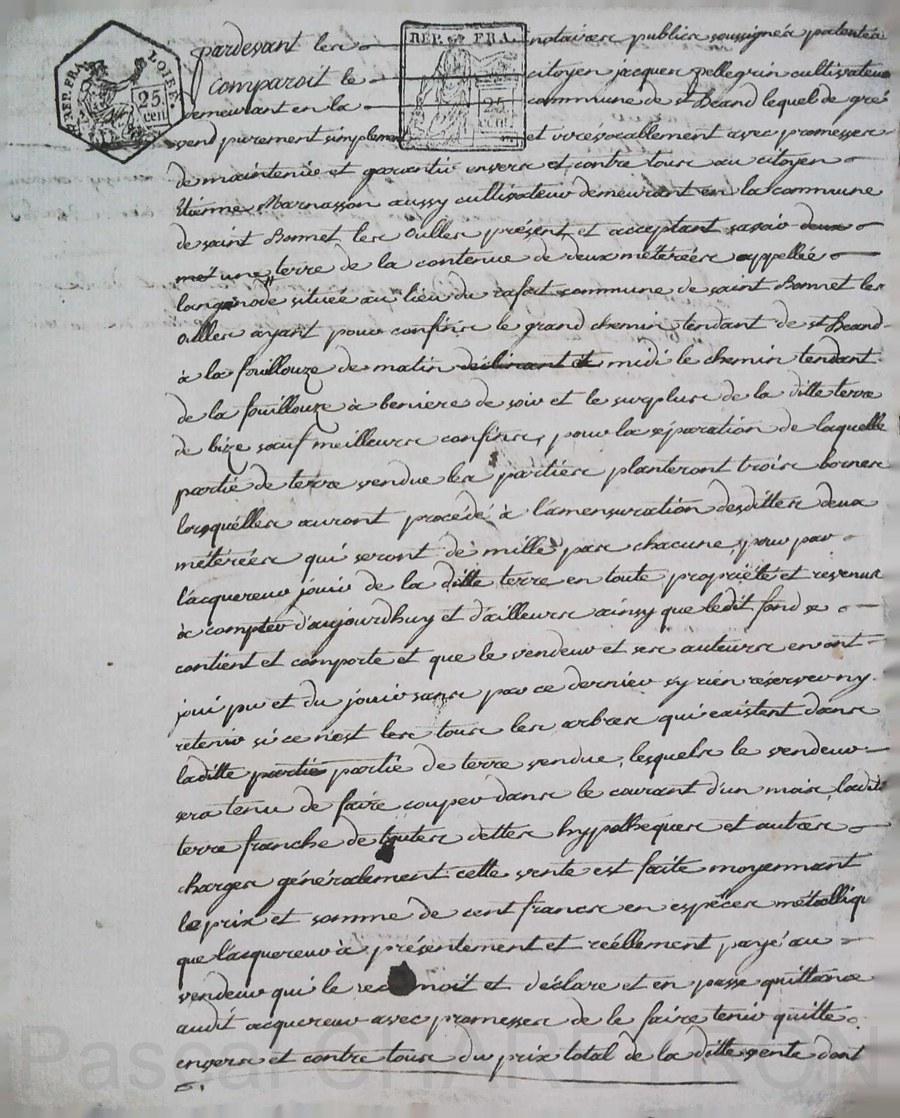 RÉP. FRA. LOIRE.
25 cent
RÉP. FRA.
25 cent
pardevant les notaires publics soussignés patentés
comparoit le citoyen jacques pellegrin cultivateur
demeurant en la commune de st heand lequel de gré
vend purement simplement et irrévocablement avec promesses
de maintenir et garantir envers et contre tous au citoyen
Etienne Marnasson aussy cultivateur demeurant en la commune
de saint Bonnet les Oulles présent et acceptant savoir deux
mot une terre de la contenue de deux méterées appellée
située au lieu du rafort commune de saint Bonnet les
oulles ayant pour confins le grand chemin tendant de st heand
à la fouillouze de matin déclinant à midi le chemin tendant
de la fouillouze à beniere de soir et le surplus de la ditte terre
de bize sauf meilleurs confins, pour la séparation de laquelle
partie de terre vendue les parties planteront trois bornes
lorsquelles auront procédé à l'amensuration desdittes deux
méterées qui seront de mille pas chacune, pour par
l'acquereur jouir de la ditte terre en toute propriété et revenus
à compter d'aujourdhuy et d'ailleurs ainsy que ledit fond se
contient et comporte et que le vendeur et ses auteurs en ont
joui pu et du jouir sans par ce dernier sy rien réserver ny
retenir si ce n'est les tous les arbres qui existent dans
laditte partie partie de terre vendue, lesquels le vendeur
sera tenu de faire couper dans le courant d'un mois, laditte
terre franche de toutes dettes hypothéques et autres
charges généralement cette vente est faite moyennant
le prix et somme de cent francs en espéces métalliq
que l'acquereur à présentement et réellement payé au
vendeur qui le reconnoit et déclare et en passe quittance
audit acquereur avec promesses de le faire tenir quitte
envers et contre tous du prix total de la ditte vente dont
Pascal CHARPYRON